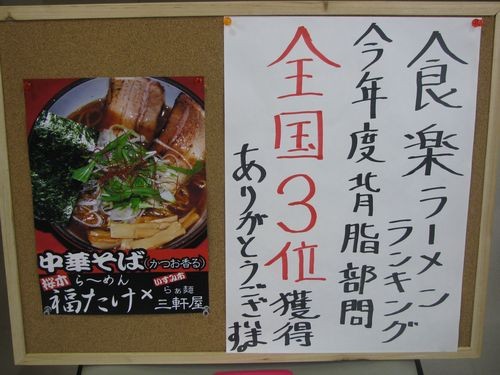 食楽ラーメン
ランキング
今年度背脂部問
全国3位獲得
ありがとうございます
中華そば(かつお香る)
らーめん
福たけ
×
いすみ市
らぁ麺
三軒屋